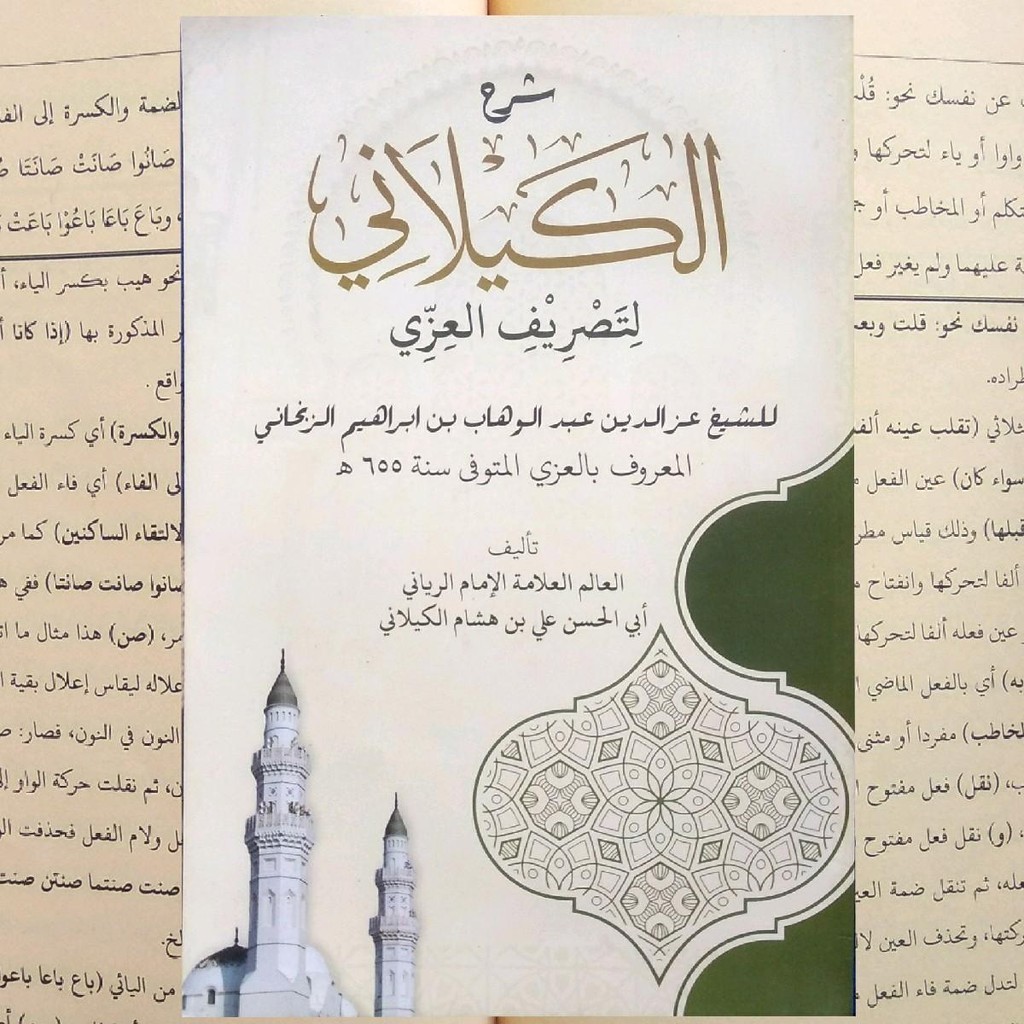 شرح
الكَيْلَانِي
لِتَصْرِيْفِ العِزِّي
للشيخ عز الدين عبد الوهاب بن ابراهيم الزنجاني
المعروف بالعزي المتوفى سنة ٦٥٥ هـ
تأليف
العالم العلامة الإمام الرباني
أبي الحسن علي بن هشام الكيلاني
عن نفسك نحو:
واوا أو ياء لتحركها
تكلم أو المخاطب أو
عليهما ولم يغير فعل
نفسك نحو: قلت
ثلاثي (تقلب عينه
سواء كان) عين الفعل
قبلها) وذلك قياس
ألفا لتحركها وانفتاح
عين فعله ألفا لتحركها
به) أي بالفعل الماضي
مفردا أو مثنى
(نقل) فعل مفتوح
(و) نقل فعل مفتوح
ثم تنقل ضمة
وتحذف العين
لتدل ضمة فاء الفعل
لضمة والكسرة إلى
صَانُوا صَانَتْ صَانَتَا
وبَاعَ بَاعَا بَاعُوْا بَاعَتْ
نحو هيب بكسر الياء،
المذكورة بها (إذا كانا
والكسرة) أي كسرة الياء
لى الفاء) أي فاء الفعل
لالتقاء الساكنين) كما مر
صانوا صانت صانتا) ففي
(صن) هذا مثال ما
علاله ليقاس إعلال بقية
النون في النون، فصار:
ثم نقلت حركة الواو
ولام الفعل فحذفت
صنت صنتما صنتن
من اليائي (باع باعا باعوا